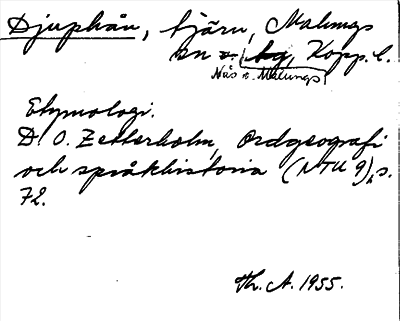 Djuphån, tjärn, Malungs
sn o. bg, Kopp. l.
Näs o. Malungs
Etymologi.
D. O. Zetterholm, Ordgeografi
och språkhistoria (NTU 9), s.
72.
Th. A. 1955.